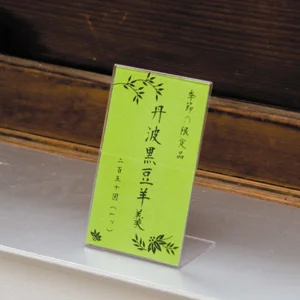 季節の限定品
丹波黒豆羊羹
二百五十円(一ツ)